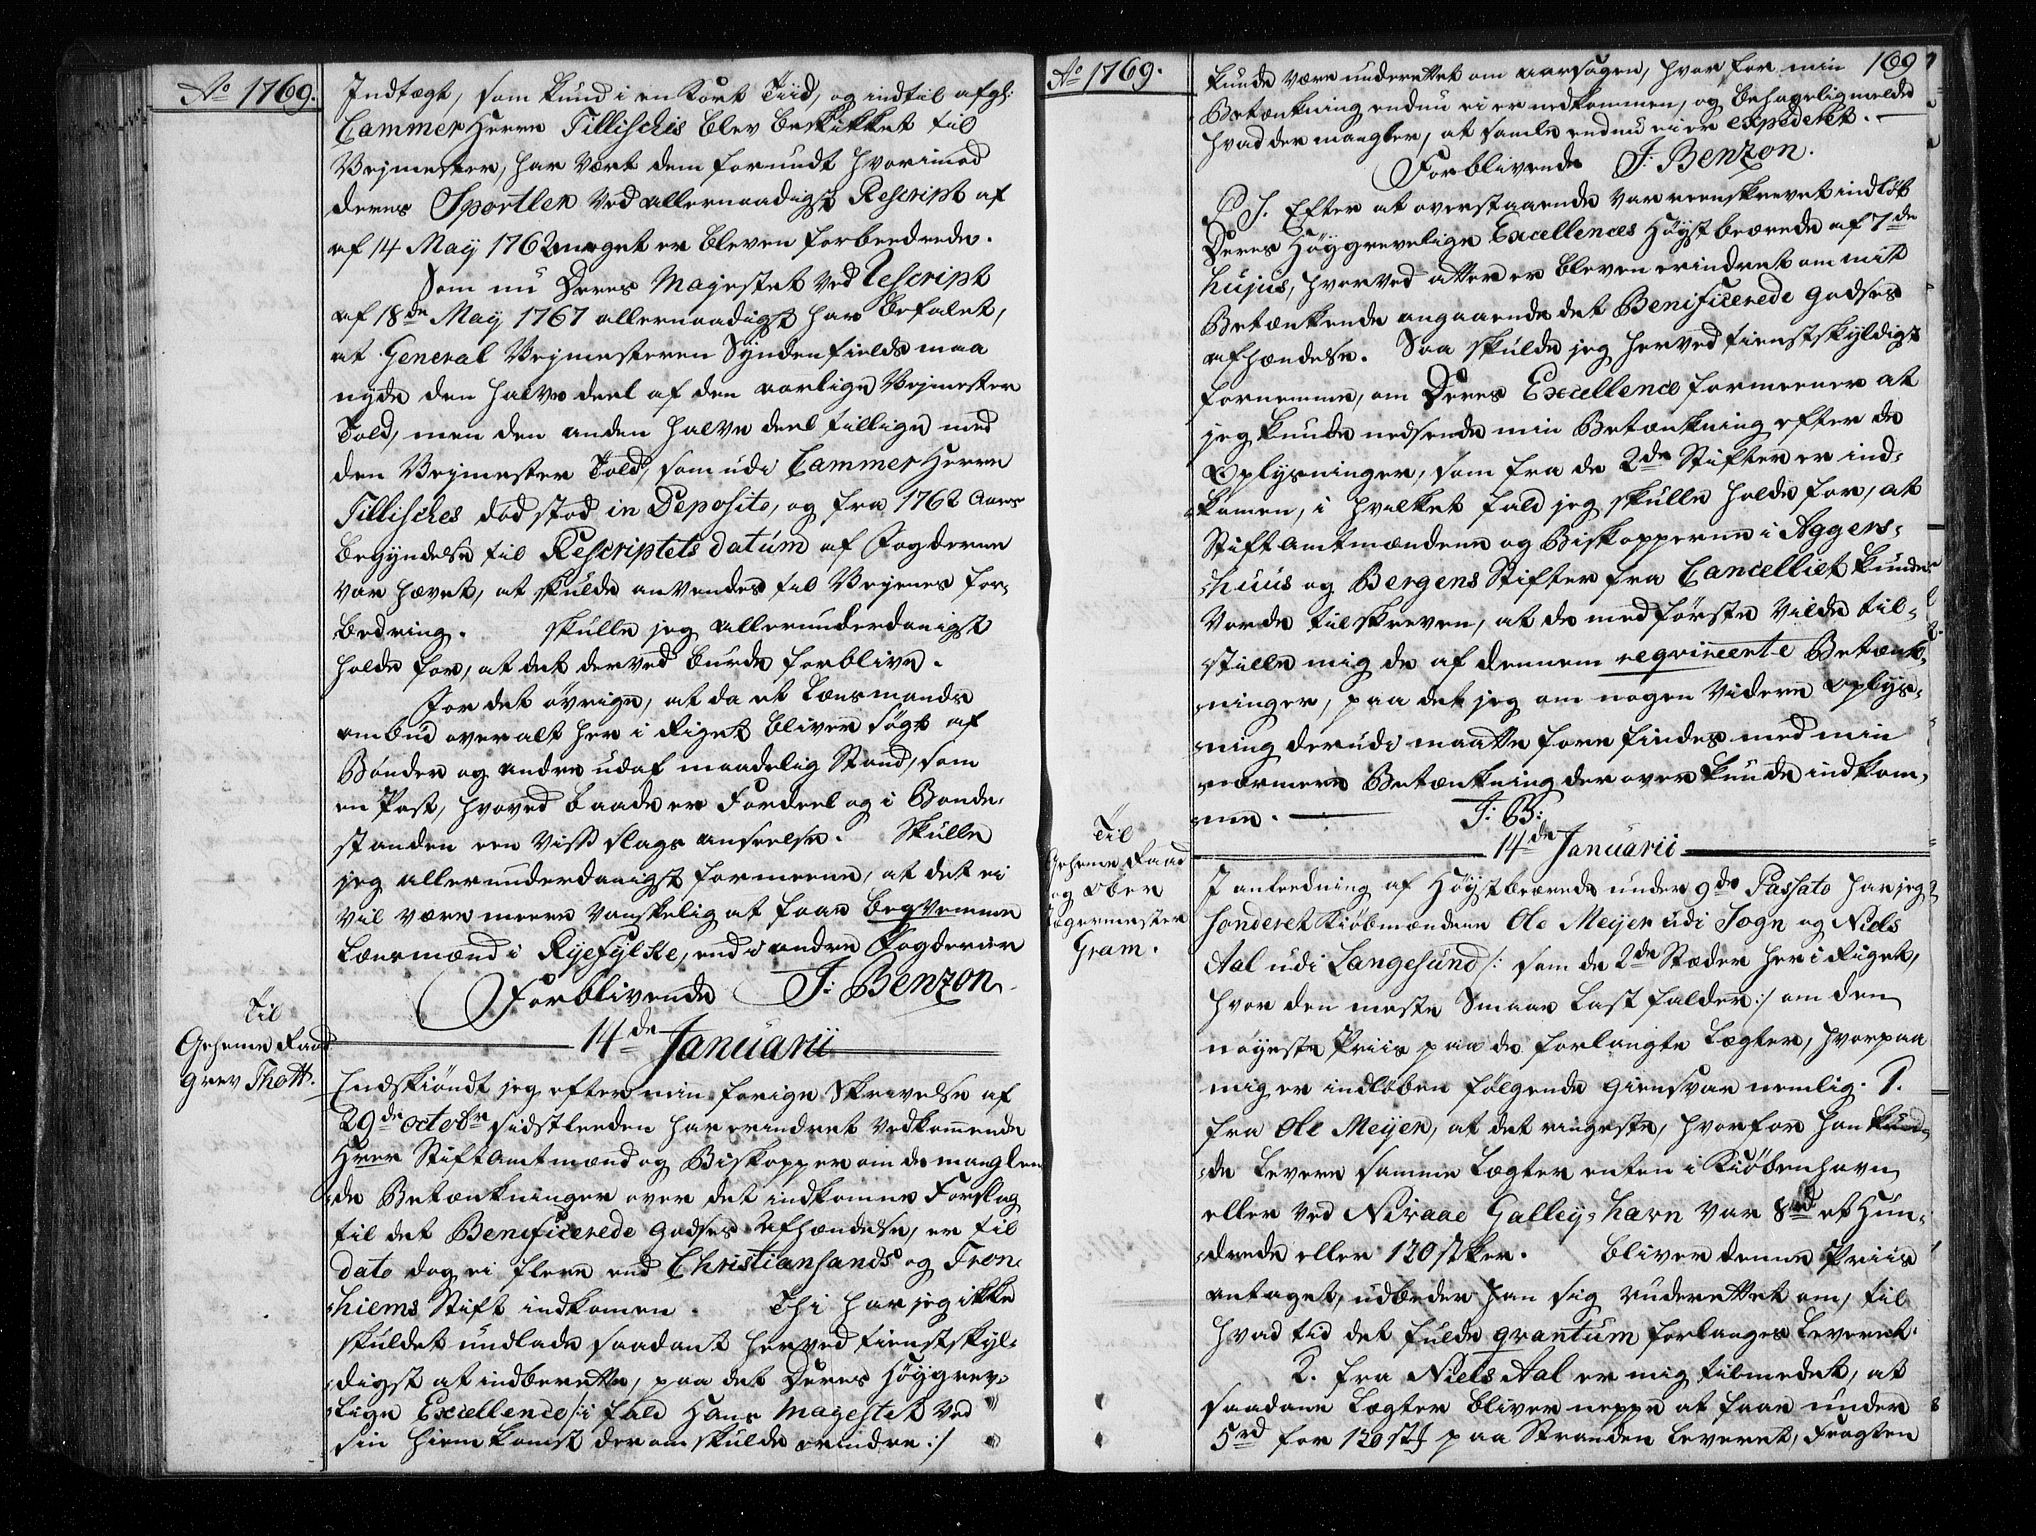 Ao 1769.
Indtægt, som kund i en kort Tiid, og indtil afgl:
Cammer Herre Tillisches blev beskikket til
Vejmester, har vært dem forundt hvorimod
deres Sportler ved allernaadigst Rescript af
af 14 Maÿ 1762 meget er bleven forbeedrede.
Som nu Deres Majestet ved Rescript
af 18de Maÿ 1767 allernaadigst har befalet,
at General Vejmesteren Syndenfields maa
nyde den halve deel af den aarlige Vejmester
Told, men den anden halve deel tillige med
den Vejmester Told, som udi Cammer Herre
Tillisches død stod in Deposito, og fra 1762 Aars
begyndelse til Rescriptets datum af Fogderne
var hævet, at skulde anvendes til Vejenes for-
bedring. skulle jeg allerunderdanigst
holde for, at det derved burde forblive.
For det øvrige, at da et Lensmands
ombud over alt her i Riget bliver søgt af
Bønder og andre udaf maadelig Stand, som
en Post, hvoved baade er Fordeel og i Bonde-
standen een Viss slags anseelse. Skulle
jeg allerunderdanigst formeene, at det ei
vil være meere vanskelig at faae beqvemme
Lensmænd i Ryefylcke, end i andre Fogderier
Forblivende J: Benzon.
14de Januarii
Til
Geheime Raad
Grev Thott.
Endskiøndt jeg efter min forige Skrivelse af
29de octobr sidstleeden har erindret vedkommende
Hrer Stiftamtmænd og Biskopper om de manglen
-de Betænkninger over det indkomne Forslag
til det Benificerede Godses Afhændelse, er til
dato dog ei flere end Christiansands og Tron-
-hiems Stift indkomen. Thi har jeg ikke
skuldet undlade saadant herved tienstskyl-
-digst at indberette, paa det Deres Høÿgrev-
-lige Excellence /: i fald Hans Magestet ved
sin hiemkomst derom skulde erindre :/
Ao 1769.
169
kunde være underettet om aarsagen, hvorfor min
Betænkning endnu ei er nedkommen, og behagelig melde
hvad der mangler, at samle endnu ei er expederet.
Forblivende J: Benzon.
P S. Efter at overstaaende var reenskrevet indløb
Deres Høÿgrevelige Excellences Høÿstbeærede af 7de
hujus, hvorved atter er bleven erindret om mit
Betænkende angaaende det Benificerede Godses
afhændelse. Saa skulde jeg herved tienstskyldigst
fornemme, om Deres Excellence formeener at
jeg kunde nedsende min Betænkning efter de
Oplysninger, som fra de 2de Stifter er ind-
kommen, i hvilket fald jeg skulle holde for, at
Stiftamtmændene og Biskopperne i Aggers-
-huus og Bergens Stifter fra Cancelliet kunde
Vorde tilskreven, at de med første vilde til-
stille mig de af dennem reqvireerte Betænk-
-ninger, paa det jeg om nogen videre oplys-
-ning derudi maatte forefindes med min
nærmere Betænkning derover kunde indkom-
-me. J: B:
14de Januarii
Til
Geheime Raad
og Ober
Jægermester
Gram.
I anleedning af Høÿstbeærede under 9de Passato har jeg
sonderet Kiøbmændene Ole Meÿer udi Sogn og Niels
Aal udi Langesund /: som de 2de Stæder her i Riget,
hvor den meste Smaae Last falder :/ om den
nøÿeste Priis paa de forlangte Lægter, hvorpaa
mig er indløben følgende Giensvar nemlig. 1.
fra Ole Meÿer, at det ringeste, hvorfor han kun-
-de levere samme Lægter enten i Kiøbenhavn
eller ved Niraae Galleÿ-havn var 8rd et Hun-
-drede eller 120 stker. bliver denne Priis
antaget, udbeder han sig underettet om, til
hvad tid det fulde qvantum forlanges leveret.
2. fra Niels Aal er mig tilmeldet, at
saadane Lægter bliver neppe at faae under
5rd for 120 stk paa Stranden leveret, Fragten